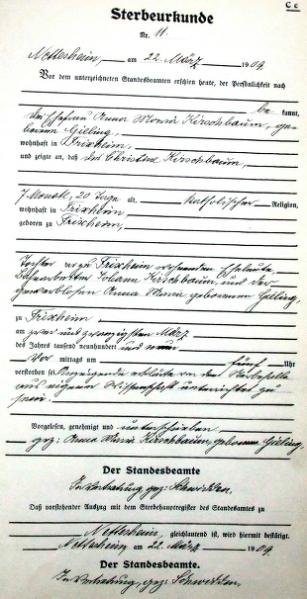 C c
Sterbeurkunde
Nr. 11.
Nettersheim, am 22. März 1909.
Vor dem unterzeichneten Standesbeamten erschien heute, der Persönlichkeit nach
be kannt,
die Ehefrau Anna Maria Kirschbaum, ge-
borene Gieling,
wohnhaft in Frixheim,
und zeigte an, daß die Christina Kirschbaum,
7 Monate, 20 Tage alt, katholischer Religion,
wohnhaft in Frixheim,
geboren zu Frixheim,
Tochter der zu Frixheim wohnenden Eheleute,
Johann Kirschbaum, und der
Anna Maria geborenen Gieling,
zu Frixheim,
am zwei und zwanzigsten März
des Jahres tausend neunhundert und neun
Vor mittags um fünf Uhr
verstorben sei. Anzeigende erklärte von dem Sterbefalle
aus eigener Wissenschaft unterrichtet zu
sein.
Vorgelesen, genehmigt und unterschrieben
gez: Anna Maria Kirschbaum, geborene Gieling.
Der Standesbeamte
In Vertretung gez:
Daß vorstehender Auszug mit dem Sterbehauptregister des Standesamtes zu
gleichlautend ist, wird hiermit bestätigt.
am 22. März 1909.
Der Standesbeamte.
In Vertretung, gez: